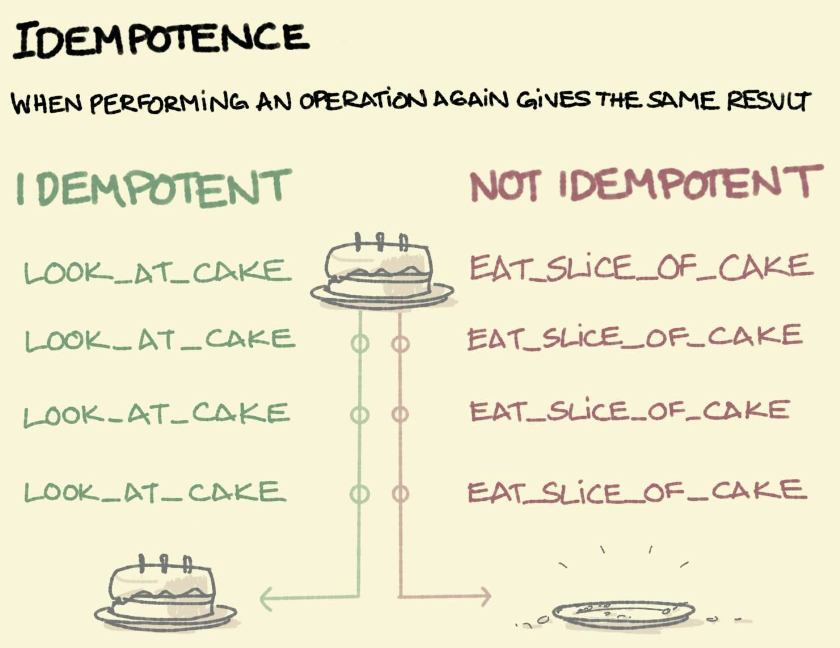 IDEMPOTENCE
WHEN PERFORMiNG AN OPERATiON AGAiN GiVES THE SAME RESULT
IDEMPOTENT
LOOK_AT_CAKE
LOOK_AT_CAKE
LOOK_AT_CAKE
LOOK_AT_CAKE
NOT IDEMPOTENT
EAT_SLiCE_OF_CAKE
EAT_SLiCE_OF_CAKE
EAT_SLiCE_OF_CAKE
EAT_SLiCE_OF_CAKE